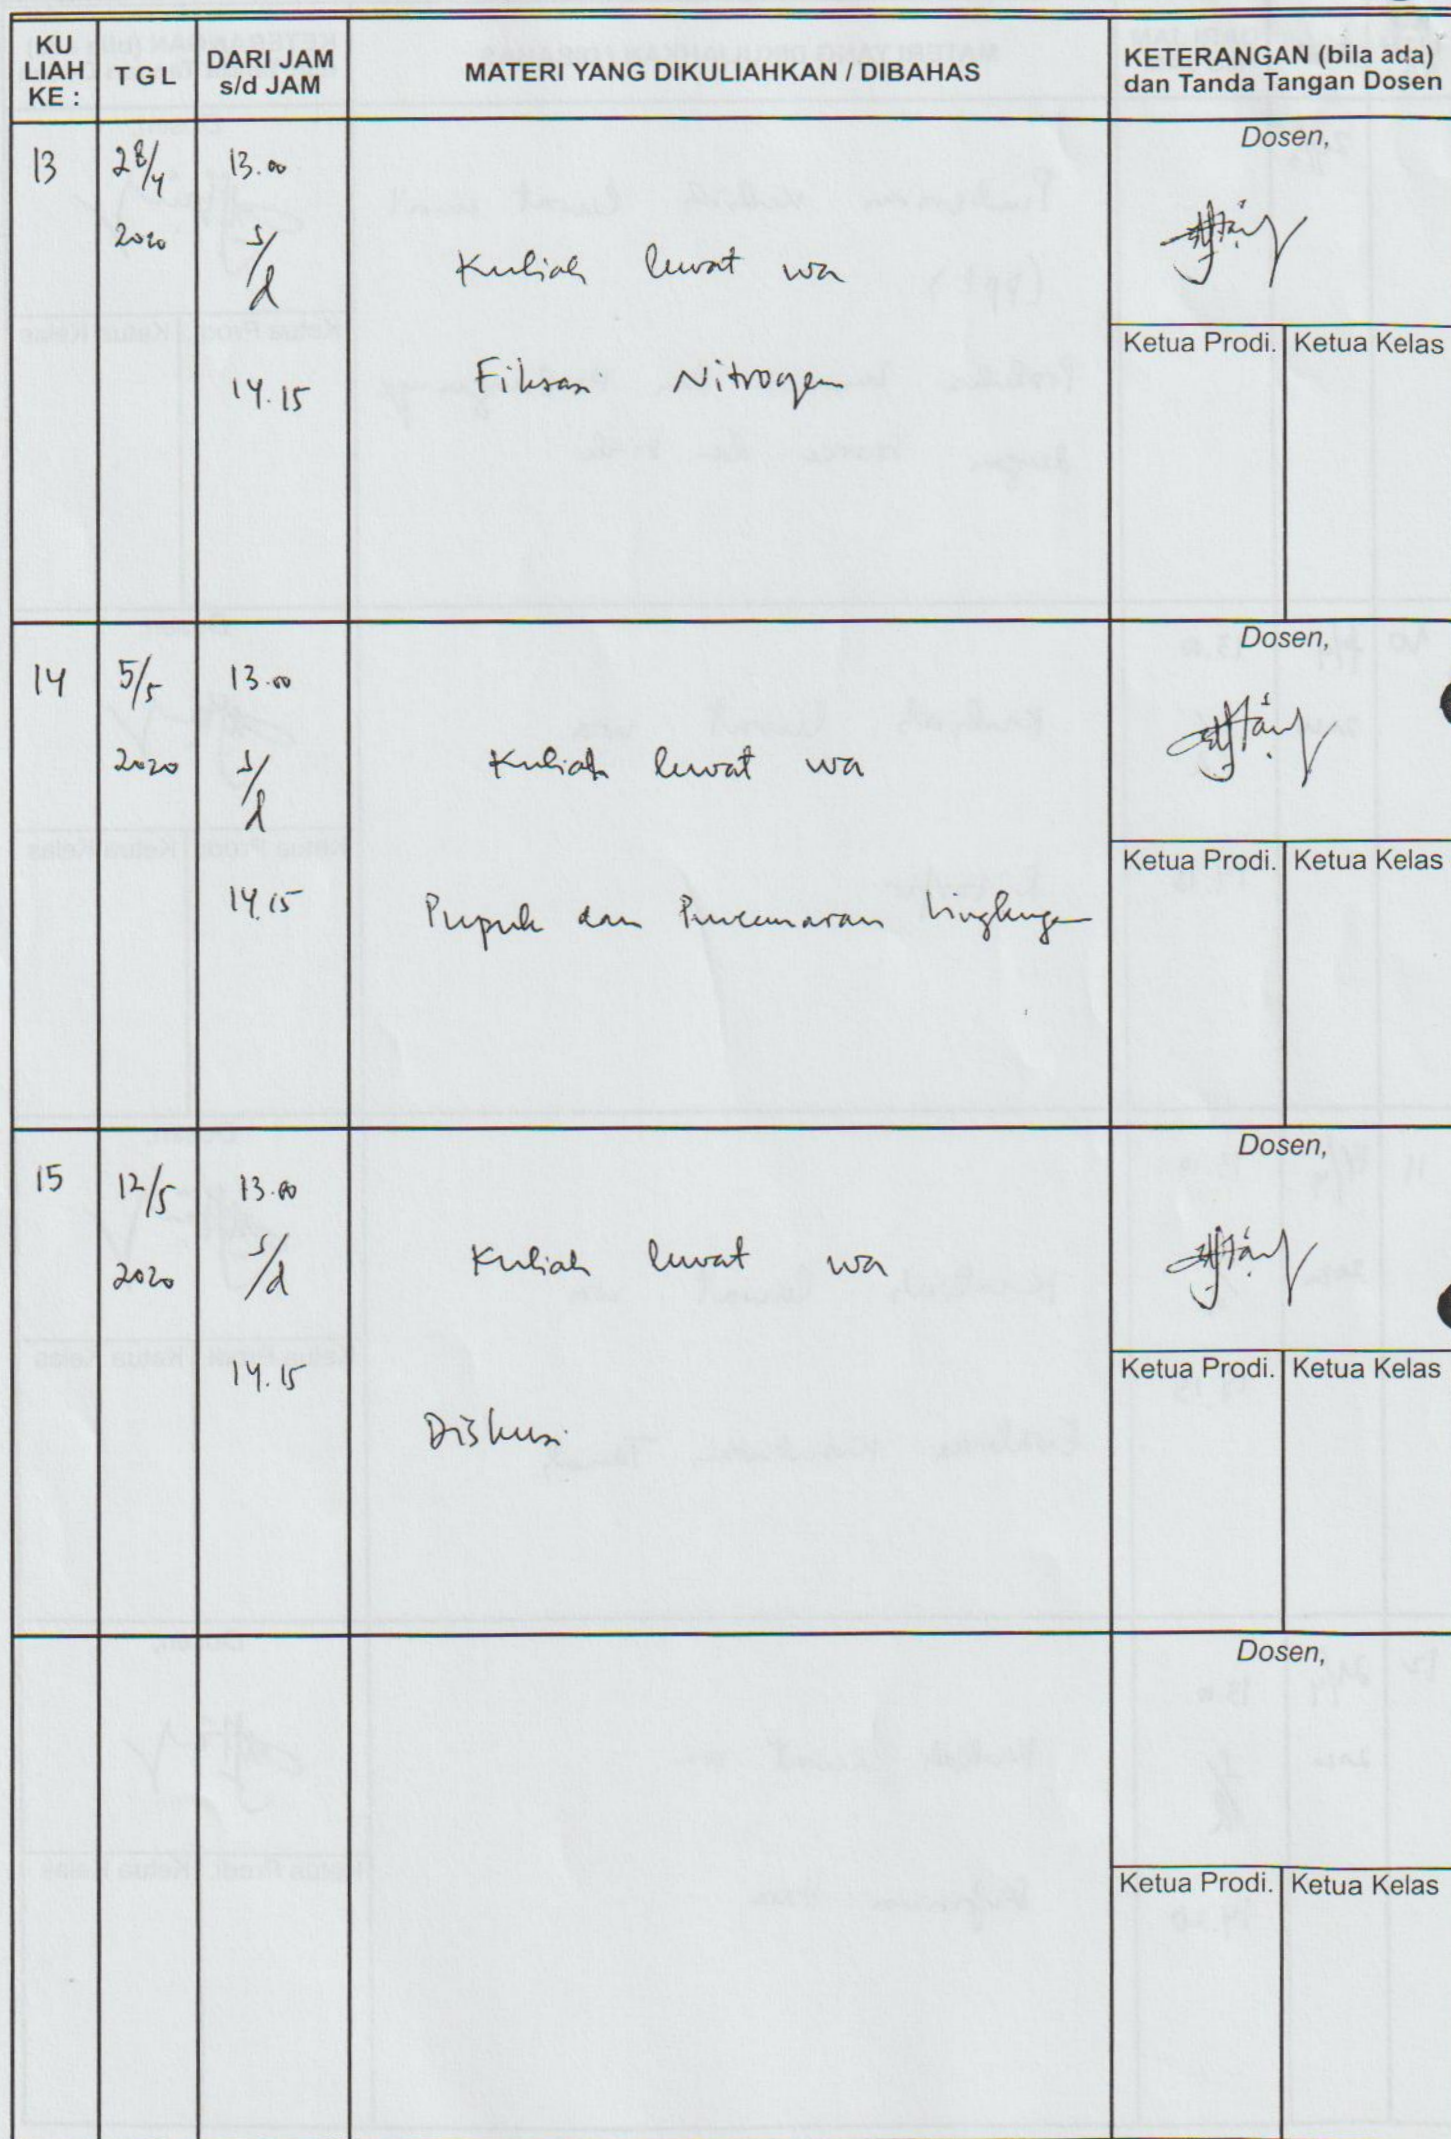 KU LIAH KE :
TGL
DARI JAM s/d JAM
MATERI YANG DIKULIAHKAN / DIBAHAS
KETERANGAN (bila ada)
dan Tanda Tangan Dosen
13
28/4
2020
13.00
s/d
14.15
Kuliah lewat wa
Fiksasi Nitrogen
Dosen,
Ketua Prodi.
Ketua Kelas
14
5/5
2020
13.00
s/d
14.15
Kuliah lewat wa
Pupuk dan Pencemaran Lingkungan
Dosen,
Ketua Prodi.
Ketua Kelas
15
12/5
2020
13.00
s/d
14.15
Kuliah lewat wa
Diskusi
Dosen,
Ketua Prodi.
Ketua Kelas
Dosen,
Ketua Prodi.
Ketua Kelas